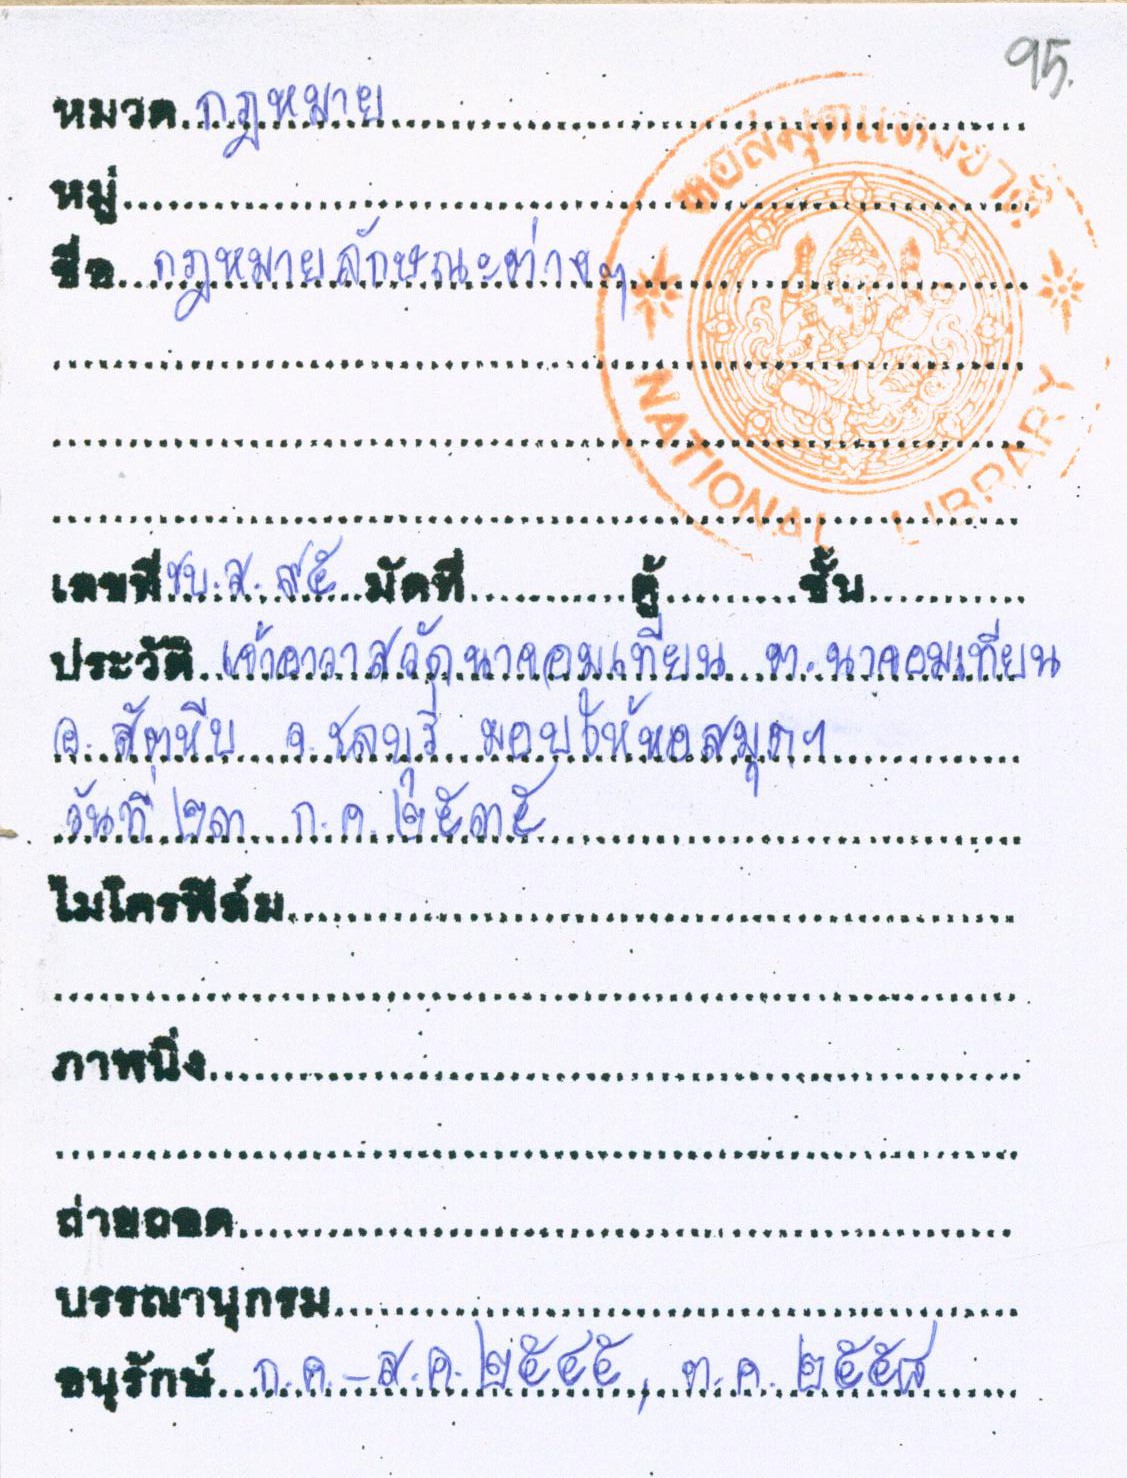 95.
หมวด กฎหมาย
หมู่
ชื่อ กฎหมายลักษณะต่างๆ
หอสมุดแห่งชาติ
NATIONAL LIBRARY
เลขที่ ชบ.ส. ๙๕ มัดที่ ตู้ ชั้น
ประวัติ เจ้าอาวาสวัดนาจอมเทียน ต.นาจอมเทียน
อ. สัตหีบ จ.ชลบุรี มอบให้หอสมุดฯ
วันที่ ๒๓ ก.ค. ๒๕๓๕
ไมโครฟิล์ม
ภาพนิ่ง
ถ่ายถอด
บรรณานุกรม
อนุรักษ์ ก.ค.-ส.ค. ๒๕๔๕, ต.ค. ๒๕๕๘